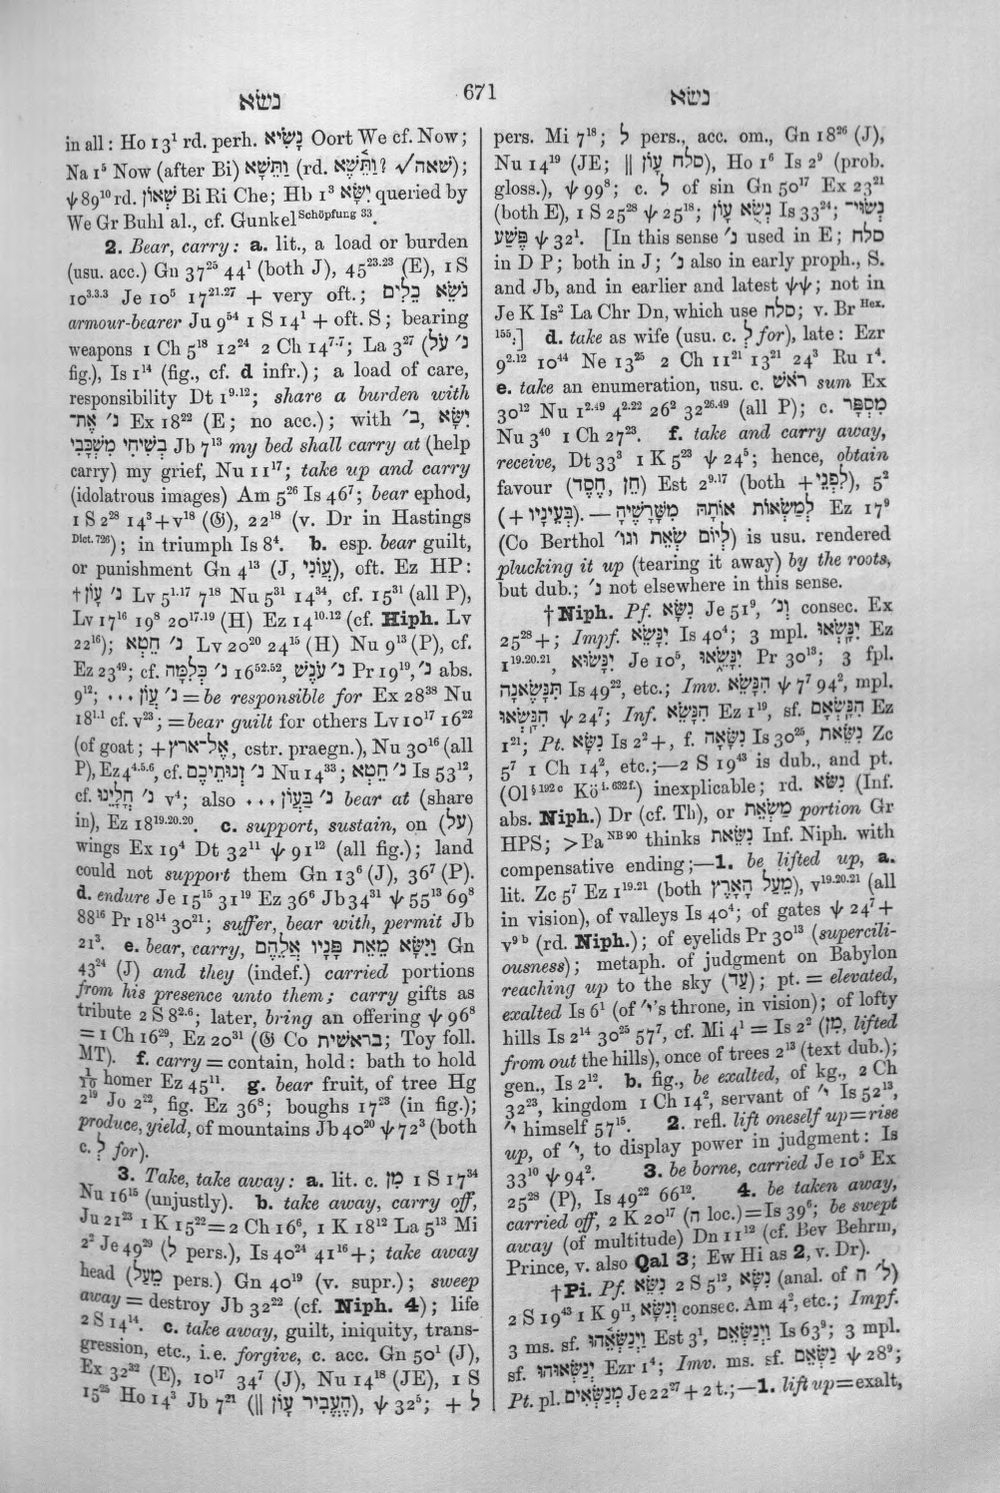 נשׂא
671
נשׂא
in all : Ho 13¹ rd. perh. נָשִׂיא Oort We cf. Now;
Na 1⁵ Now (after Bi) וַתִּשָּׁא (rd. וַתִּשָּׁא? √שאה);
ψ 89¹⁰ rd. שְׁאוֹן Bi Ri Che; Hb 1³ יִשָּׂא queried by
We Gr Buhl al., cf. Gunkel Schöpfung 33.
2. Bear, carry: a. lit., a load or burden
(usu. acc.) Gn 37²⁵ 44¹ (both J), 45²³·²³ (E), 1 S
10³·³·³ Je 10⁵ 17²¹·²⁷ + very oft.; נֹשֵׂא כֵלִים
armour-bearer Ju 9⁵⁴ 1 S 14¹ + oft. S; bearing
weapons 1 Ch 5¹⁸ 12²⁴ 2 Ch 14⁷·⁷; La 3²⁷ (נ׳ עֹל
fig.), Is 1¹⁴ (fig., cf. d infr.); a load of care,
responsibility Dt 1⁹·¹²; share a burden with
נ׳ אֶת־ Ex 18²² (E; no acc.); with ב׳, יִשָּׂא
בְשִׂיחִי מִשְׁכָּבִי Jb 7¹³ my bed shall carry at (help
carry) my grief, Nu 11¹⁷; take up and carry
(idolatrous images) Am 5²⁶ Is 46⁷; bear ephod,
1 S 2²⁸ 14³ + v¹⁸ (𝔊), 22¹⁸ (v. Dr in Hastings
Dict. 726); in triumph Is 8⁴. b. esp. bear guilt,
or punishment Gn 4¹³ (J, עֲוֹנִי), oft. Ez HP:
†נ׳ עָוֹן Lv 5¹·¹⁷ 7¹⁸ Nu 5³¹ 14³⁴, cf. 15³¹ (all P),
Lv 17¹⁶ 19⁸ 20¹⁷·¹⁹ (H) Ez 14¹⁰·¹² (cf. Hiph. Lv
22¹⁶); נ׳ חֵטְא Lv 20²⁰ 24¹⁵ (H) Nu 9¹³ (P), cf.
Ez 23⁴⁹; cf. נ׳ כְּלִמָּה 16⁵²·⁵², נ׳ עֹנֶשׁ Pr 19¹⁹, נ׳ abs.
9¹²; נ׳ עֲוֹן ... = be responsible for Ex 28³⁸ Nu
18¹·¹ cf. v²³; = bear guilt for others Lv 10¹⁷ 16²²
(of goat; + אֶל־אֶרֶץ, cstr. praegn.), Nu 30¹⁶ (all
P), Ez 4⁴·⁵·⁶, cf. נ׳ זְנוּתֵיכֶם Nu 14³³; נ׳ חֵטְא Is 53¹²,
cf. נ׳ חֳלָיֵנוּ v⁴; also נ׳ בַּעֲוֹן ... bear at (share
in), Ez 18¹⁹·²⁰·²⁰. c. support, sustain, on (עַל)
wings Ex 19⁴ Dt 32¹¹ ψ 91¹² (all fig.); land
could not support them Gn 13⁶ (J), 36⁷ (P).
d. endure Je 15¹⁵ 31¹⁹ Ez 36⁶ Jb 34³¹ ψ 55¹³ 69⁸
88¹⁶ Pr 18¹⁴ 30²¹; suffer, bear with, permit Jb
21³. e. bear, carry, וַיִּשָּׂא מַשְׂאֹת מֵאֵת פָּנָיו אֲלֵהֶם Gn
43³⁴ (J) and they (indef.) carried portions
from his presence unto them; carry gifts as
tribute 2 S 8²·⁶; later, bring an offering ψ 96⁸
= 1 Ch 16²⁹, Ez 20³¹ (𝔊 Co בראשית; Toy foll.
MT). f. carry = contain, hold: bath to hold
1/10 homer Ez 45¹¹. g. bear fruit, of tree Hg
2¹⁹ Jo 2²², fig. Ez 36⁸; boughs 17²³ (in fig.);
produce, yield, of mountains Jb 40²⁰ ψ 72³ (both
c. לְ for).
3. Take, take away: a. lit. c. מִן 1 S 17³⁴
Nu 16¹⁵ (unjustly). b. take away, carry off,
Ju 21²³ 1 K 15²² = 2 Ch 16⁶, 1 K 18¹² La 5¹³ Mi
2² Je 49²⁹ (לְ pers.), Is 40²⁴ 41¹⁶ +; take away
head (מֵעַל pers.) Gn 40¹⁹ (v. supr.); sweep
away = destroy Jb 32²² (cf. Niph. 4); life
2 S 14¹⁴. c. take away, guilt, iniquity, trans-
gression, etc., i.e. forgive, c. acc. Gn 50¹ (J),
Ex 32³² (E), 10¹⁷ 34⁷ (J), Nu 14¹⁸ (JE), 1 S
15²⁵ Ho 14³ Jb 7²¹ (‖ הֶעֱבִיר עָוֹן), ψ 32⁵; + לְ
pers. Mi 7¹⁸; לְ pers., acc. om., Gn 18²⁶ (J),
Nu 14¹⁹ (JE; ‖ סלח עָוֹן), Ho 1⁶ Is 2⁹ (prob.
gloss.), ψ 99⁸; c. לְ of sin Gn 50¹⁷ Ex 23²¹
(both E), 1 S 25²⁸ ψ 25¹⁸; נְשֻׂא עָוֹן Is 33²⁴; נְשׂוּי־
פֶּשַׁע ψ 32¹. [In this sense נ׳ used in E; סלח
in D P; both in J; נ׳ also in early proph., S.
and Jb, and in earlier and latest ψψ; not in
Je K Is² La Chr Dn, which use סלח; v. Br Hex.
155.] d. take as wife (usu. c. לְ for), late: Ezr
9²·¹² 10⁴⁴ Ne 13²⁵ 2 Ch 11²¹ 13²¹ 24³ Ru 1⁴.
e. take an enumeration, usu. c. ראֹשׁ sum Ex
30¹² Nu 1²·⁴⁹ 4²·²² 26² 32²⁶·⁴⁹ (all P); c. מִסְפָּר
Nu 3⁴⁰ 1 Ch 27²³. f. take and carry away,
receive, Dt 33³ 1 K 5²³ ψ 24⁵; hence, obtain
favour (חֵן, חֶסֶד) Est 2⁹·¹⁷ (both + לְפָנָי), 5²
(+ בְּעֵינָיו).— לְמַשְׂאוֹת אוֹתָהּ מִשָּׁרָשֶׁיהָ Ez 17⁹
(Co Berthol לְיוֹם שְׂאֵת וגו׳) is usu. rendered
plucking it up (tearing it away) by the roots,
but dub.; נ׳ not elsewhere in this sense.
†Niph. Pf. נִשָּׂא Je 51⁹, וְנ׳ consec. Ex
25²⁸ +; Impf. יִנָּשֵׂא Is 40⁴; 3 mpl. יִנָּשְׂאוּ Ez
1¹⁹·²⁰·²¹, יִנָּשׂוּא Je 10⁵, יִנָּשֵׂאוּ Pr 30¹³; 3 fpl.
תִּנָּשֶׂאנָה Is 49²², etc.; Imv. הִנָּשֵׂא ψ 7⁷ 94², mpl.
הִנָּשְׂאוּ ψ 24⁷; Inf. הִנָּשֵׂא Ez 1¹⁹, sf. הִנָּשְׂאָם Ez
1²¹; Pt. נִשָּׂא Is 2² +, f. נִשָּׂאָה Is 30²⁵, נִשֵּׂאת Zc
5⁷ 1 Ch 14², etc.;—2 S 19⁴³ is dub., and pt.
(Ol § 192 c Kö i. 632 f.) inexplicable; rd. נִשֹּׂא (Inf.
abs. Niph.) Dr (cf. Th), or מַשְׂאֵת portion Gr
HPS; > Pa NB 90 thinks נִשֵּׂאת Inf. Niph. with
compensative ending;—1. be lifted up, a.
lit. Zc 5⁷ Ez 1¹⁹·²¹ (both מֵעַל הָאָרֶץ), v¹⁹·²⁰·²¹ (all
in vision), of valleys Is 40⁴; of gates ψ 24⁷ +
v⁹ᵇ (rd. Niph.); of eyelids Pr 30¹³ (supercili-
ousness); metaph. of judgment on Babylon
reaching up to the sky (עַד); pt. = elevated,
exalted Is 6¹ (of י׳'s throne, in vision); of lofty
hills Is 2¹⁴ 30²⁵ 57⁷, cf. Mi 4¹ = Is 2² (מִן, lifted
from out the hills), once of trees 2¹³ (text dub.);
gen., Is 2¹². b. fig., be exalted, of kg., 2 Ch
32²³, kingdom 1 Ch 14², servant of י׳ Is 52¹³,
י׳ himself 57¹⁵. 2. refl. lift oneself up = rise
up, of י׳, to display power in judgment: Is
33¹⁰ ψ 94². 3. be borne, carried Je 10⁵ Ex
25²⁸ (P), Is 49²² 66¹². 4. be taken away,
carried off, 2 K 20¹⁷ (ה loc.) = Is 39⁶; be swept
away (of multitude) Dn 11¹² (cf. Bev Behrm,
Prince, v. also Qal 3; Ew Hi as 2, v. Dr).
†Pi. Pf. נִשֵּׂא 2 S 5¹², נִשָּׂא (anal. of ל׳ ה)
2 S 19⁴³ 1 K 9¹¹, וְנִשָּׂא consec. Am 4², etc.; Impf.
3 ms. sf. וַיְנַשְּׂאֵהוּ Est 3¹, וַיְנַשְּׂאֵם Is 63⁹; 3 mpl.
sf. יְנַשְּׂאוּהוּ Ezr 1⁴; Imv. ms. sf. נַשְּׂאֵם ψ 28⁹;
Pt. pl. מְנַשְּׂאִים Je 22²⁷ + 2 t.;—1. lift up = exalt,